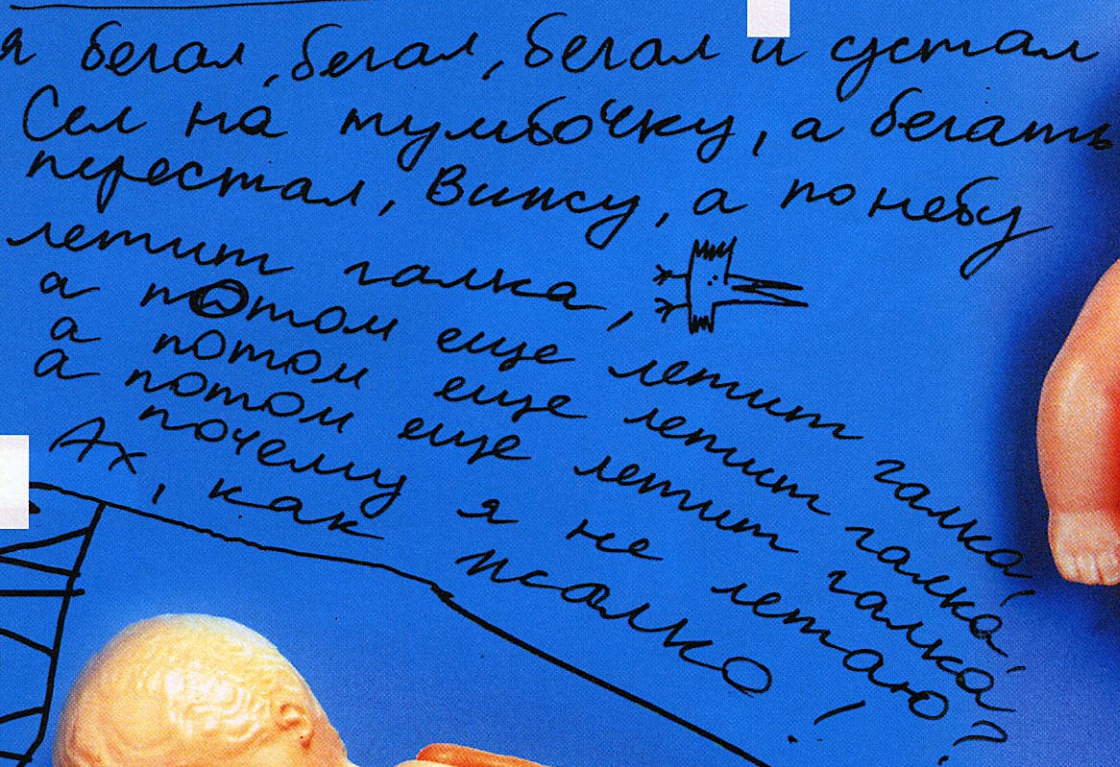 я бегал, бегал, бегал и устал
Сел на тумбочку, а бегать
перестал, Вижу, а по небу
летит галка,
а потом еще летит галка,
а потом еще летит галка,
а потом еще летит галка
почему я не летаю?
Ах, как жалко!